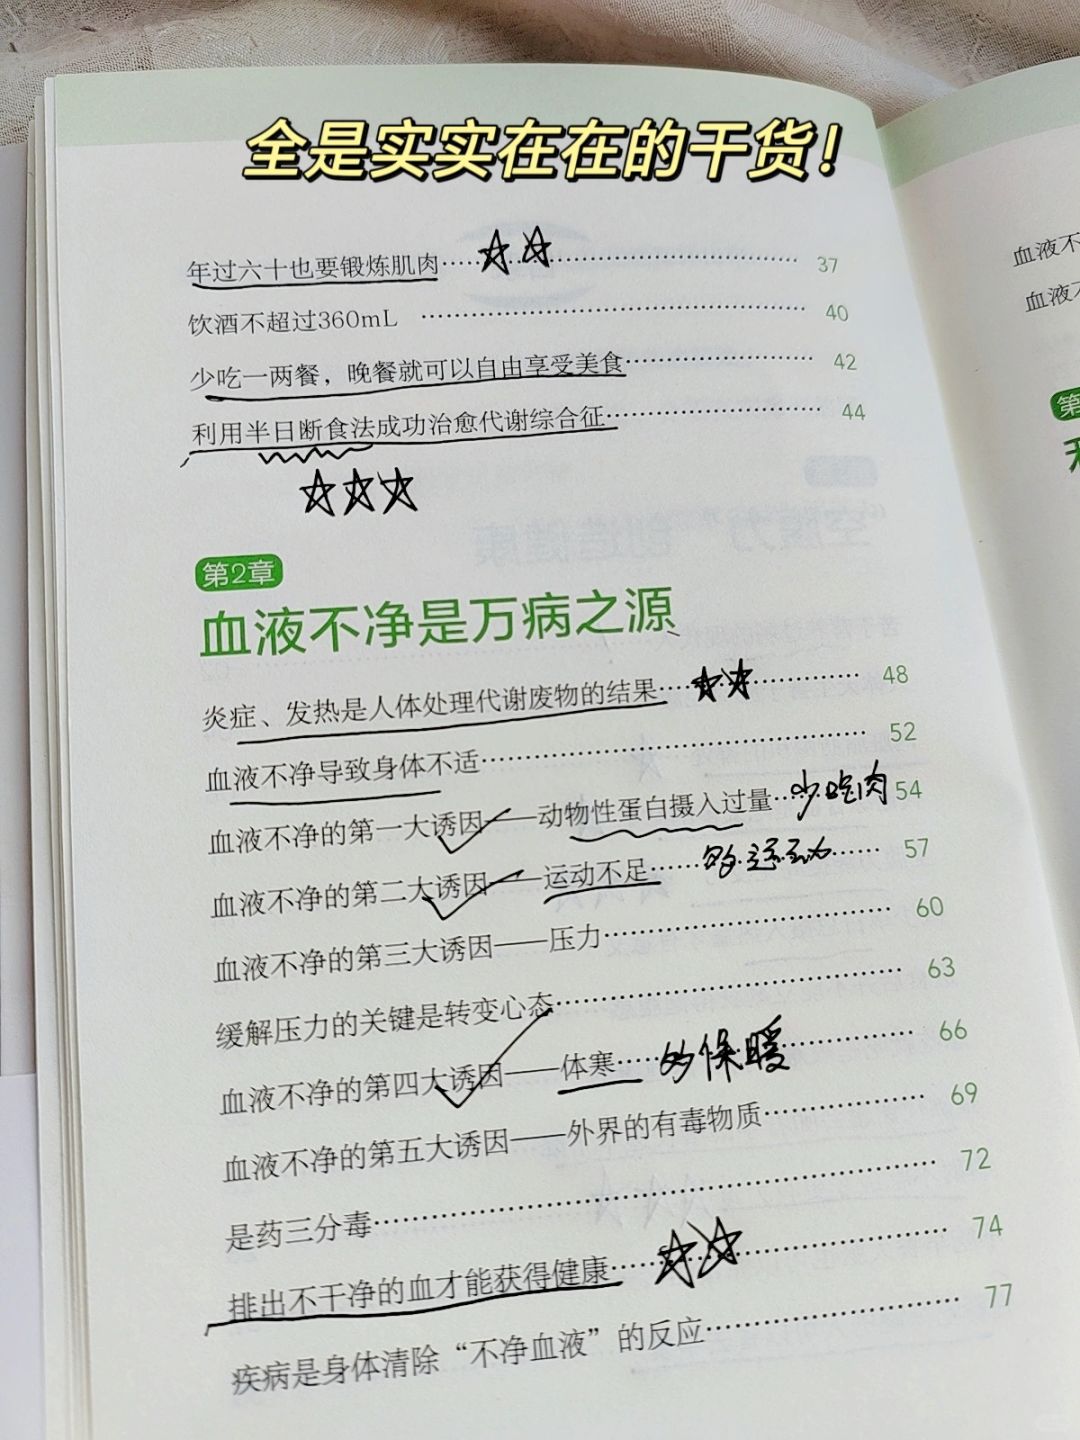 全是实实在在的干货！
年过六十也要锻炼肌肉……☆☆……37
饮酒不超过360mL ……40
少吃一两餐，晚餐就可以自由享受美食……42
利用半日断食法成功治愈代谢综合征……44
☆☆☆
第2章
血液不净是万病之源
炎症、发热是人体处理代谢废物的结果……☆☆……48
血液不净导致身体不适……52
血液不净的第一大诱因——动物性蛋白摄入过量……少吃肉 54
血液不净的第二大诱因——运动不足……多运动……57
血液不净的第三大诱因——压力……60
缓解压力的关键是转变心态……63
血液不净的第四大诱因——体寒……多保暖……66
血液不净的第五大诱因——外界的有毒物质……69
是药三分毒……72
排出不干净的血才能获得健康……☆☆……74
疾病是身体清除“不净血液”的反应……77
血液不
血液不
第